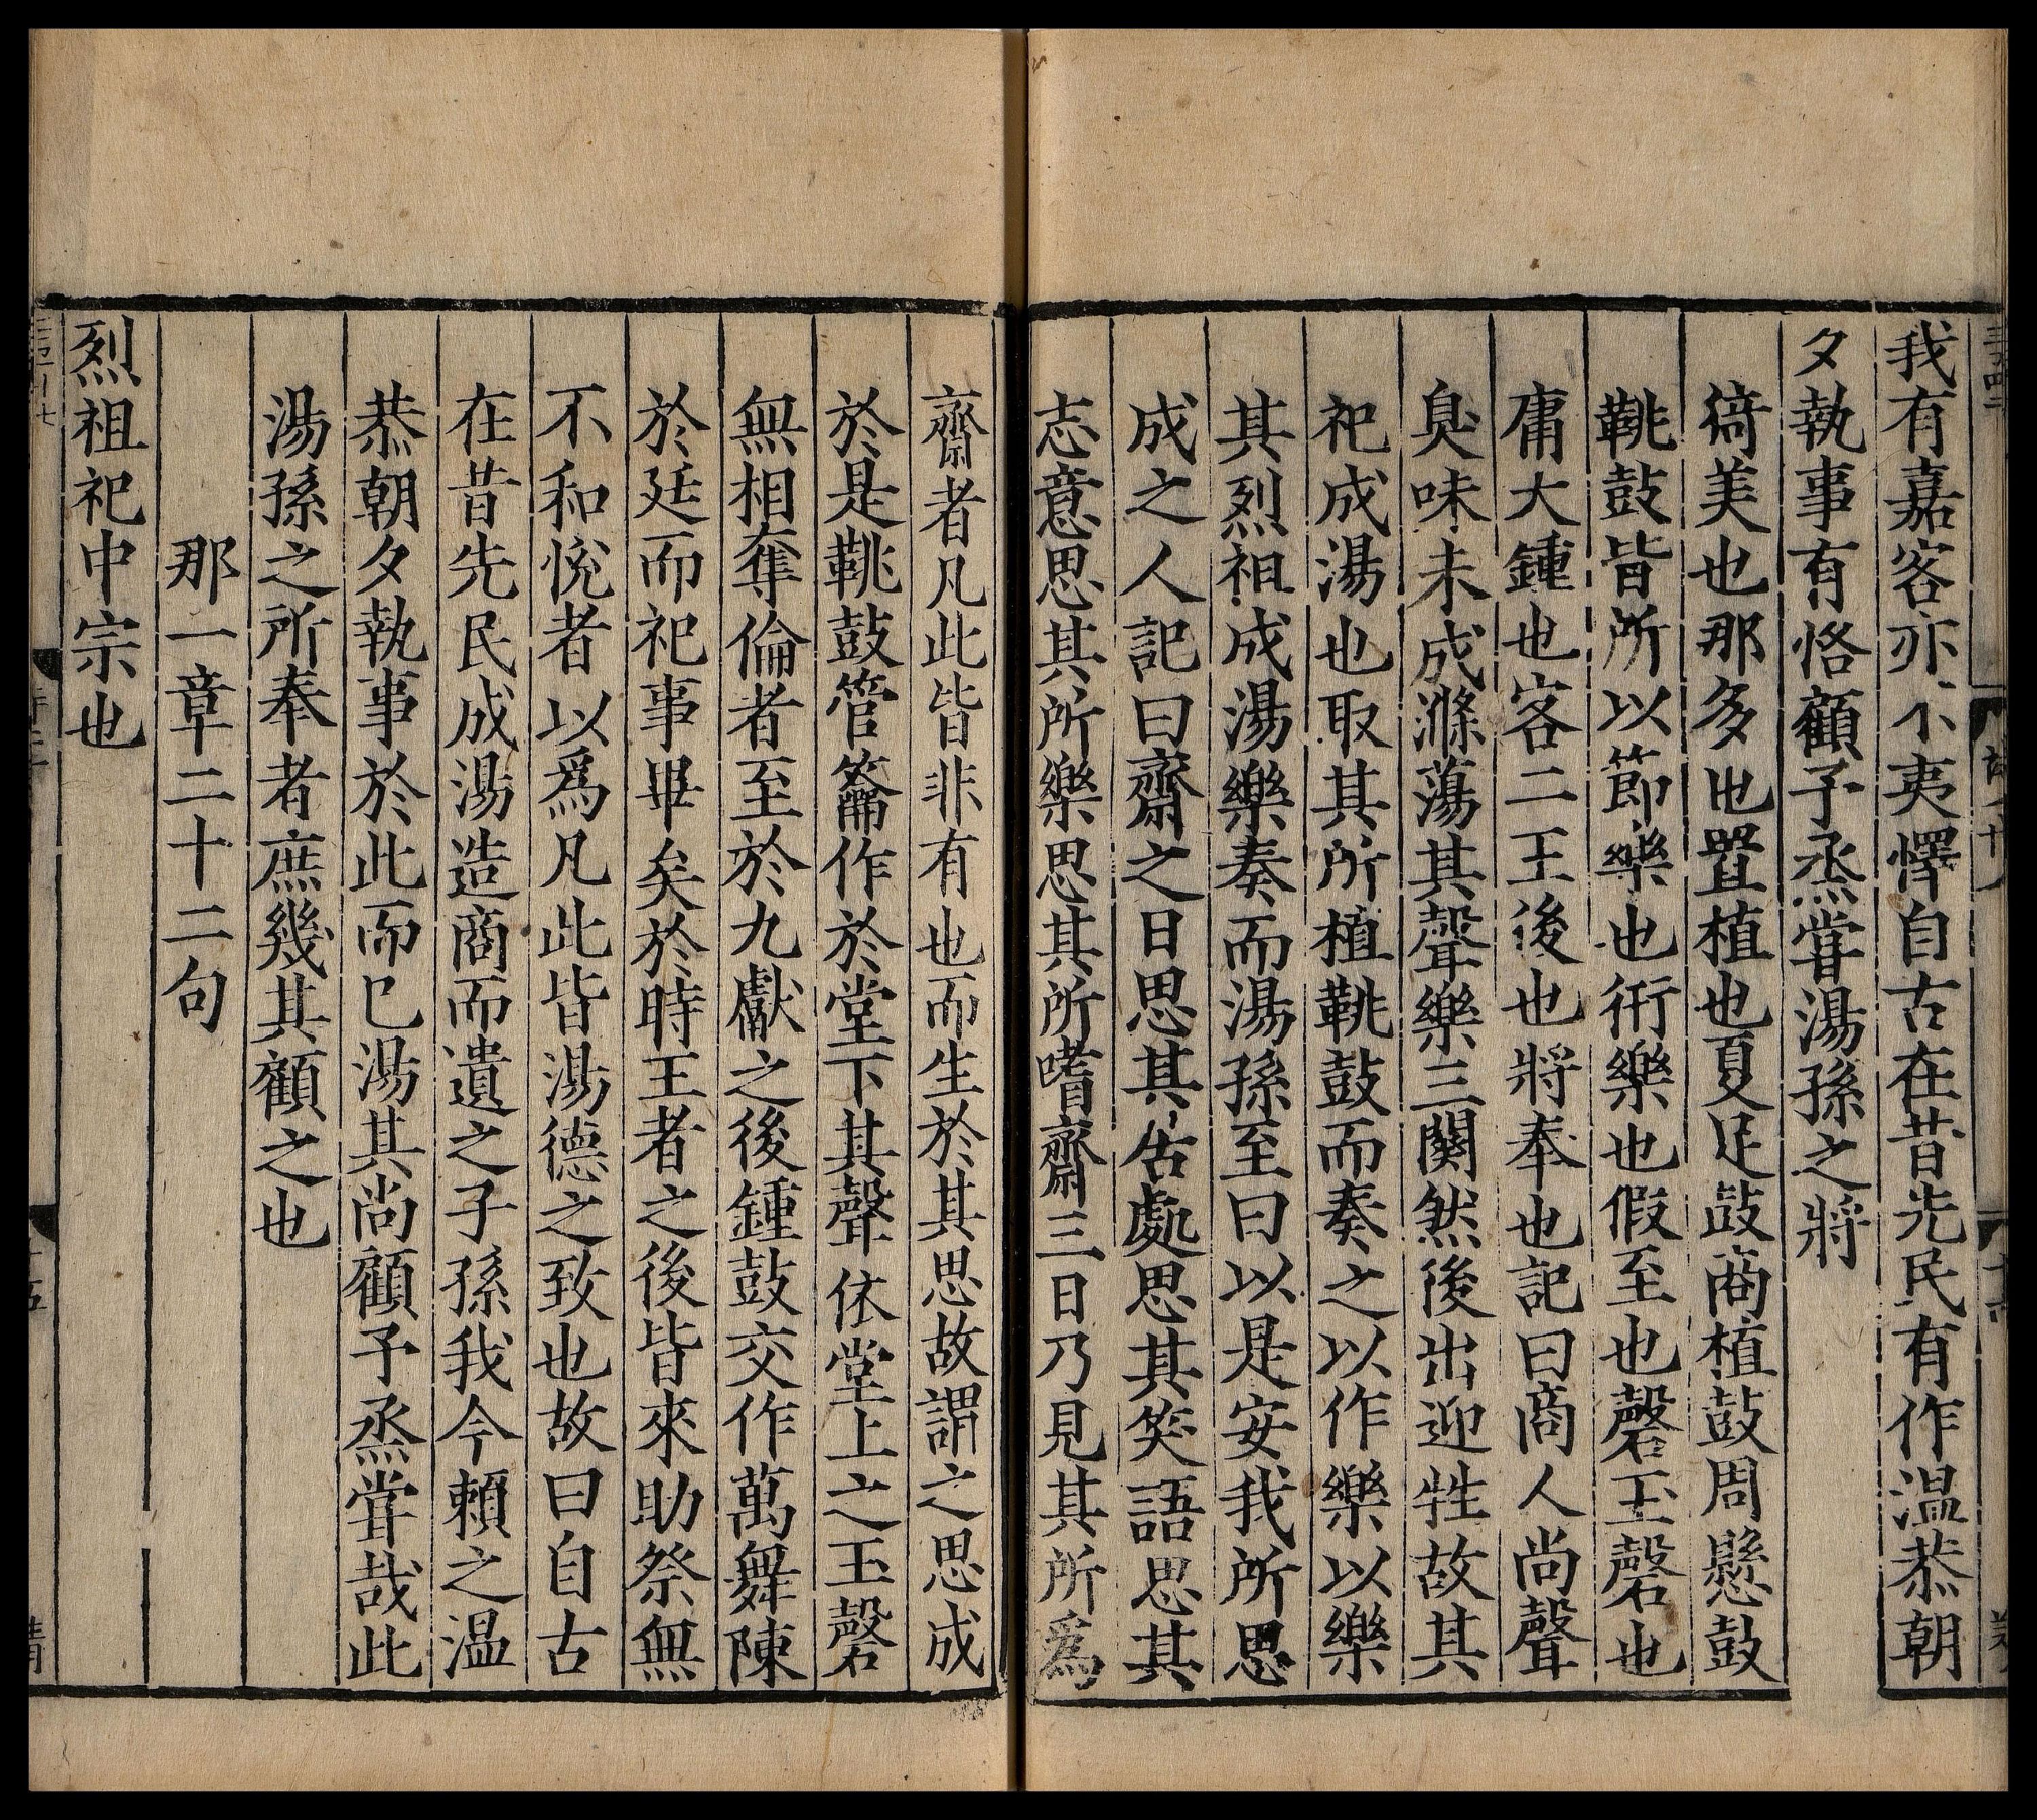 我有嘉客亦不夷懌自古在昔先民有作温恭朝
夕執事有恪顧予烝甞湯孫之將
猗美也那多也置植也夏足鼓商植鼓周懸鼓
鞉鼓皆所以節樂也衎樂也假至也磬玉磬也
庸大鍾也客二王後也將奉也記曰商人尚聲
臭味未成滌蕩其聲樂三闋然後出迎牲故其
祀成湯也取其所植鞉鼓而奏之以作樂以樂
其烈祖成湯樂奏而湯孫至曰以是安我所思
成之人記曰齋之日思其居處思其笑語思其
志意思其所樂思其所嗜齋三日乃見其所爲
齋者凡此皆非有也而生於其思故謂之思成
於是鞉鼓管籥作於堂下其聲依堂上之玉磬
無相奪倫者至於九獻之後鍾鼓交作萬舞陳
於廷而祀事畢矣於時王者之後皆來助祭無
不和悅者以爲凡此皆湯德之致也故曰自古
在昔先民成湯造商而遺之子孫我今賴之温
恭朝夕執事於此而巳湯其尚顧予烝甞哉此
湯孫之所奉者庶幾其顧之也
那一章二十二句
烈祖祀中宗也